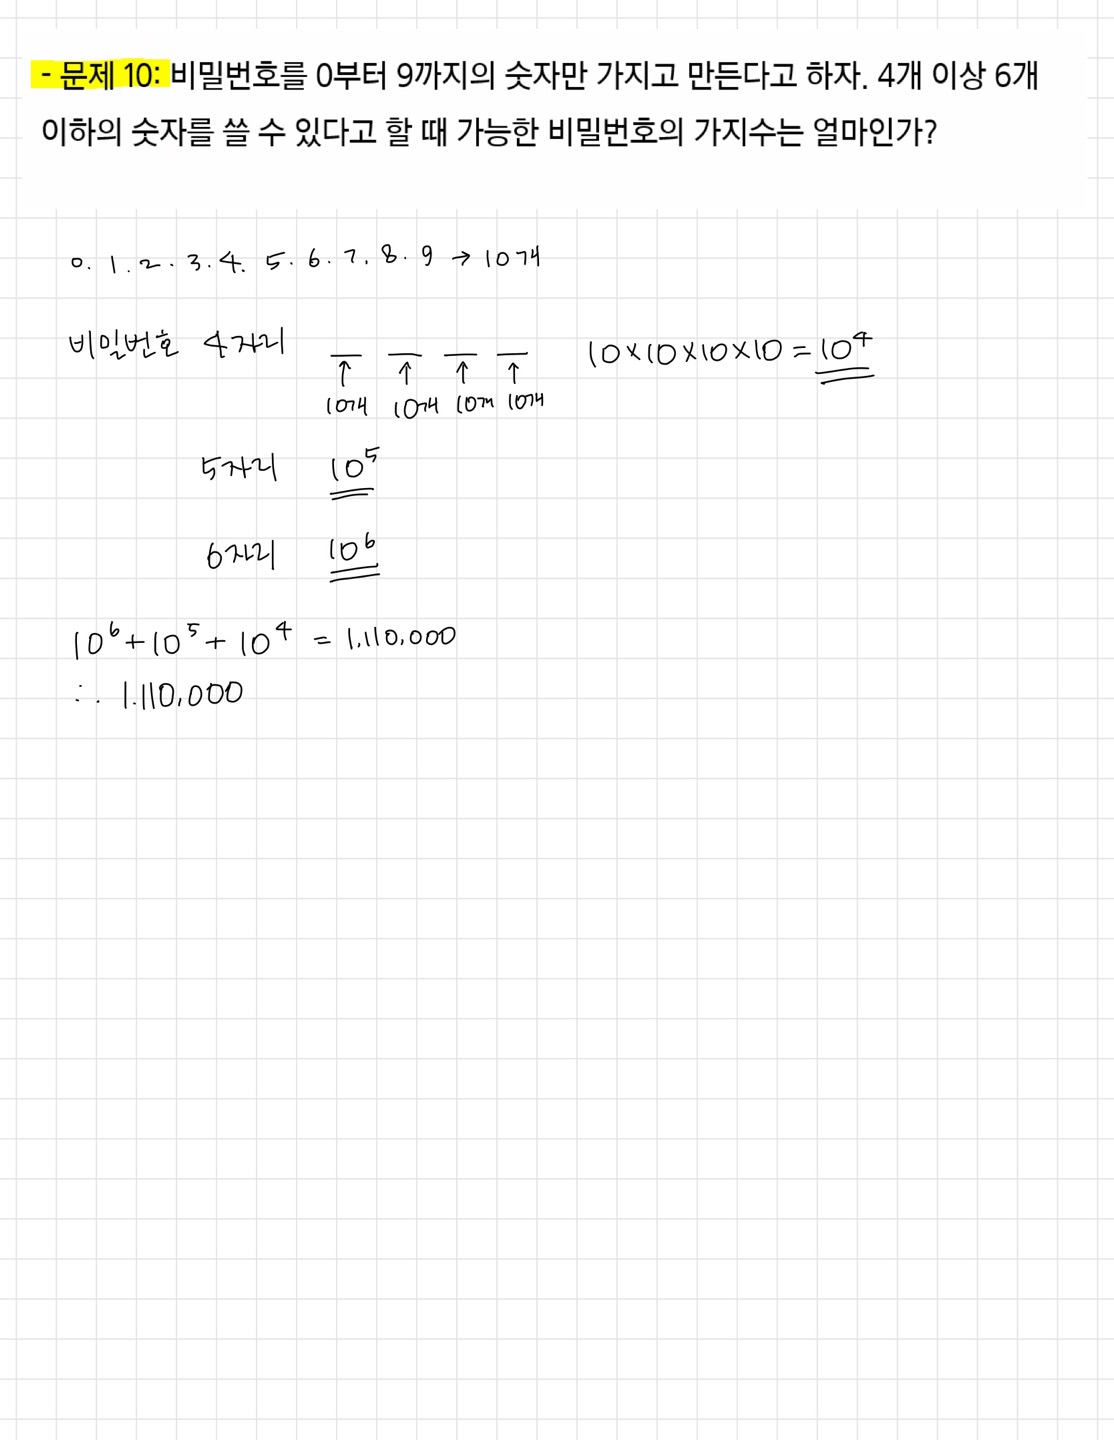 - 문제 10: 비밀번호를 0부터 9까지의 숫자만 가지고 만든다고 하자. 4개 이상 6개
이하의 숫자를 쓸 수 있다고 할 때 가능한 비밀번호의 가지수는 얼마인가?
0. 1. 2. 3. 4. 5. 6. 7. 8. 9 → 10개
비밀번호 4자리 10×10×10×10 = 10⁴
↑ ↑ ↑ ↑
10개 10개 10개 10개
5자리 10⁵
6자리 10⁶
10⁶+10⁵+10⁴ = 1.110,000
∴ 1.110,000